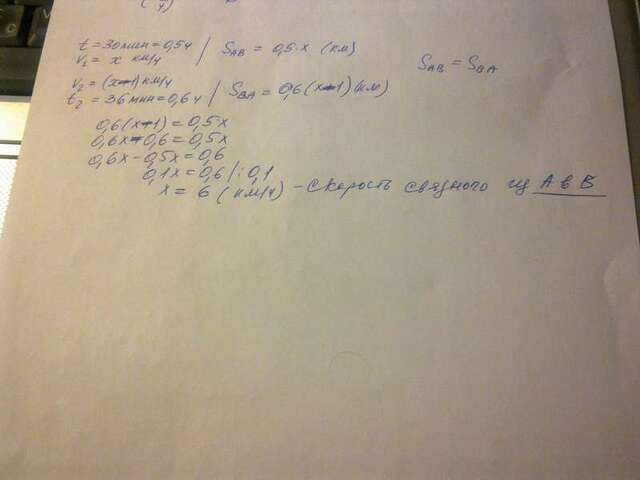 t = 30 мин = 0,5ч / S AB = 0,5·x (км)
V1 = x км/ч
SAB = SBA
V2 = (x-1) км/ч
t2 = 36 мин = 0,6ч / SBA = 0,6(x-1) (км)
0,6(x-1) = 0,5x
0,6x-0,6 = 0,5x
0,6x - 0,5x = 0,6
0,1x = 0,6 /:0,1
x = 6 (км/ч) - скорость связного из А в В